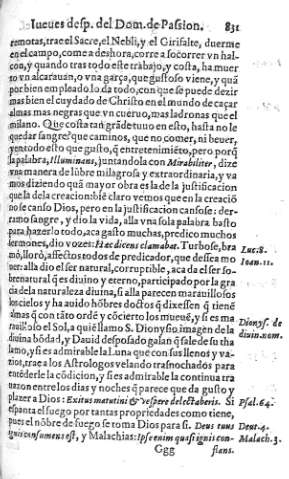 Iueues desp. del Dom. de Passion. 831
remotas, trae el Sacre, el Nebli, y el Girifalte, duerme
en el campo, come a deshora, corre a socorrer vn hal-
con, y quando tras todo este trabajo, y costa, ha muer
to vn alcarauan, o vna garça, que gustoso viene, y quã
por bien empleado lo da todo, con que se puede dezir
mas bien el cuydado de Christo en el mundo de caçar
almas mas negras que vn cueruo, mas ladronas que el
milano. Que costa tan grãde tuuo en esto, hasta no le
quedar sangre? que caminos, que no comer, ni beuer,
y en todo esto que gusto, q̃ entretenimiẽto, pero porq̃
la palabra, Illuminans, juntandola con Mirabiliter, dize
vna manera de lũbre milagrosa y extraordinaria, y va
mos diziendo quã mayor obra es la de la justificacion
que la de la creacion: biẽ claro vemos que en la creaciõ
no se canso Dios, pero en la justificacion canso se: der-
ramo sangre, y dio la vida, alla vna sola palabra basto
para hazerlo todo, aca gasto muchas, predico muchos
sermones, dio vozes: Hæc dicens clamabat. Turbose, bra Luc. 8.
mò, llorò, affectos todos de predicador, que dessea mo Ioan. 11.
uer: alla dio el ser natural, corruptible, aca da el ser so-
brenatural q̃ es diuino y eterno, participado por la gra
cia de la naturaleza diuina, si alla parecen marauillosos
los cielos y ha auido hõbres doctos q̃ dixessen q̃ tienẽ
almas q̃ con tãto ordẽ y cõcierto los mueuẽ, y si es ma Dionys. de
rauilloso el Sol, a quiẽ llamo S. Dionysio imagen de la diuin. nom.
diuina bõdad, y Dauid desposado galan q̃ sale de su tha
lamo, y si es admirable la Luna que con sus llenos y va-
zios, trae a los Astrologos velando trasnochados para
entẽderle la cõdicion, y si es admirable la continua tra
uazon entre los dias y noches q̃ parece que da gusto y
plazer a Dios: Exitus matutini & vespere delectaberis. Si Psal. 64.
espanta el fuego por tantas propiedades como tiene,
pues el nõbre de fuego se toma Dios para si. Deus tuus Deut. 4.
ignis consumens est, y Malachias: Ipse enim quasi ignis con- Malach. 3.
Ggg flans.